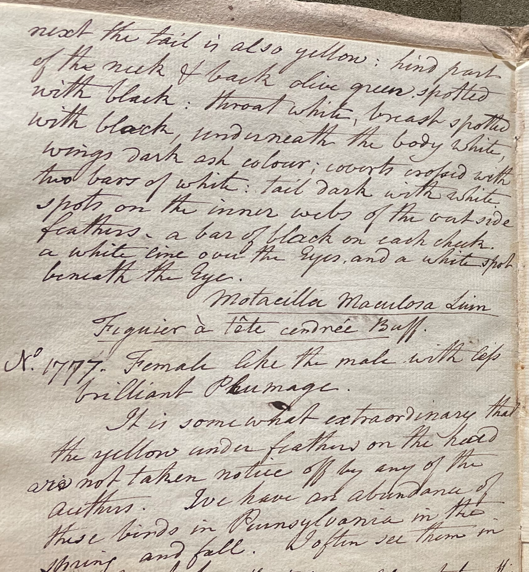 next the tail is also yellow: hind part
of the neck & back olive green spotted
with black: throat white, breast spotted
with black, underneath the body white,
wings dark ash colour; coverts crossed with
two bars of white: tail dark with white
spots on the inner webs of the out side
feathers - a bar of black on each cheek.
a white line over the Eyes, and a white spot
beneath the Eye.
Motacilla Maculosa Linn
Figuier à tête cendrée Buff.
No. 1777. Female like the male with less
brilliant Plumage.
It is somewhat extraordinary that
the yellow under feathers on the head
are not taken notice off by any of the
authors. We have an abundance of
these birds in Pennsylvania in the
spring and fall. I often see them in